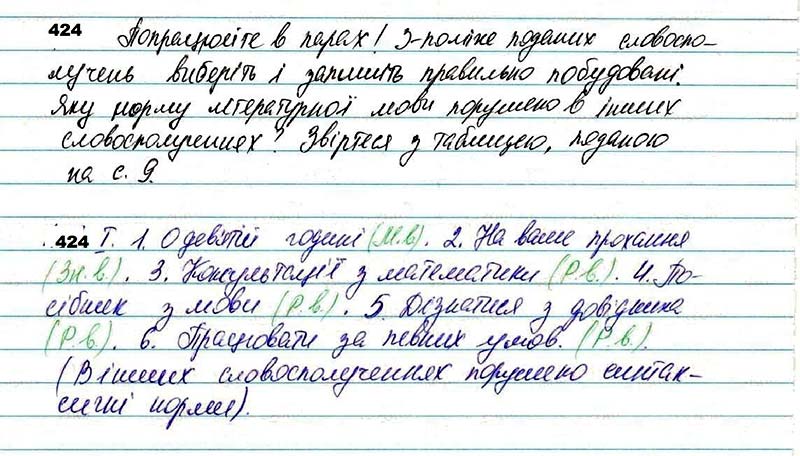 424 Попрацюйте в парах! З-поміж поданих словоспо-
лучень виберіть і запишіть правильно побудовані.
Яку норму літературної мови порушено в інших
словосполученнях? Звіртеся з таблицею, поданою
на с. 9.
424 I. 1. О дев'ятій годині (М.в). 2. На ваше прохання
(Зн.в.). 3. Консультації з математики (Р.в.). 4. По-
сібник з мови (Р.в.). 5. Дізнатися з довідника
(Р.в). 6. Працювати за певних умов. (Р.в.).
(В інших словосполученнях порушено синтак-
сичні норми).